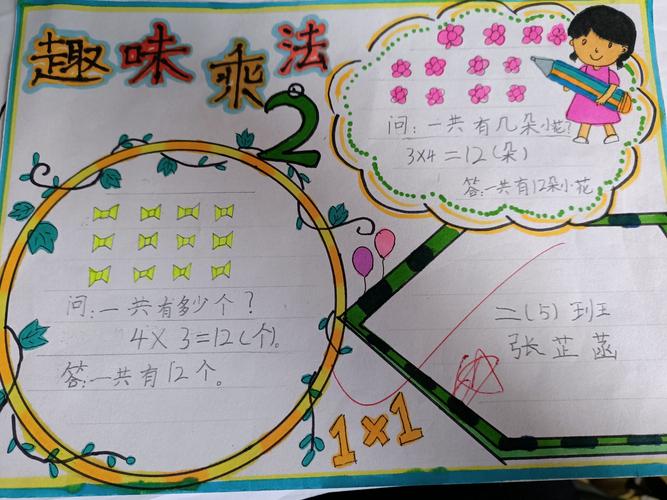 趣味乘法
2
问:一共有几朵小花?
3×4=12(朵)
答:一共有12朵小花
问:一共有多少个?
4×3=12(个)。
答:一共有12个。
二(5)班
张芷菡
1×1